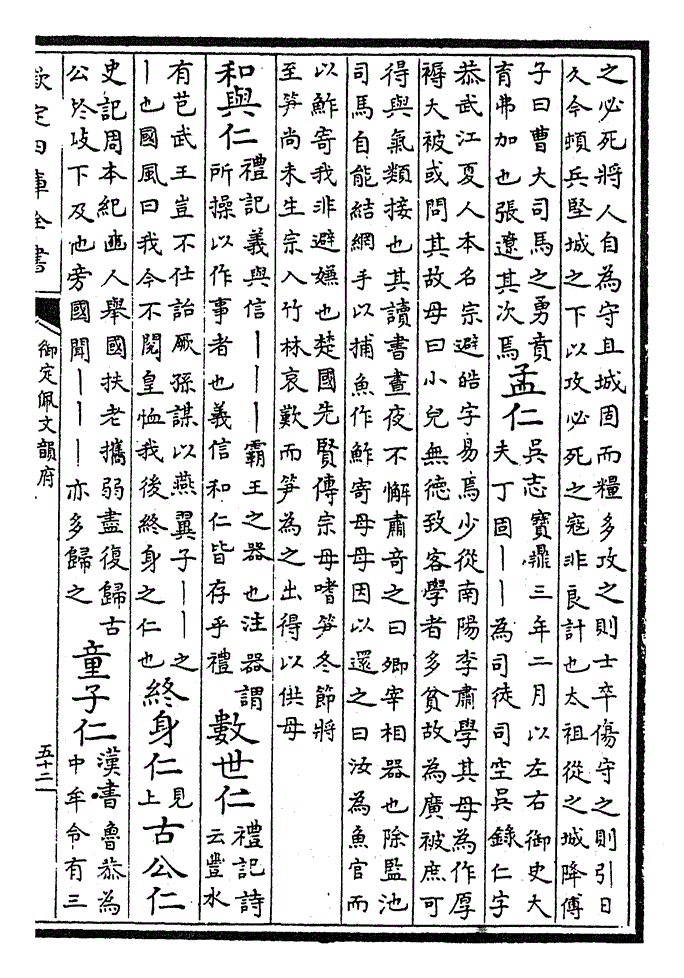 之必死將人自為守且城固而糧多攻之則士卒傷守之則引日
久今頓兵堅城之下以攻必死之寇非良計也太祖從之城降傅
子曰曹大司馬之勇賁
育弗加也張遼其次焉
孟仁
吳志寶鼎三年二月以左右御史大
夫丁固——為司徒司空吳錄仁字
恭武江夏人本名宗避皓字易焉少從南陽李肅學其母為作厚
褥大被或問其故母曰小兒無德致客學者多貧故為廣被庶可
得與氣類接也其讀書晝夜不懈肅奇之曰卿宰相器也除監池
司馬自能結網手以捕魚作鮓寄母母因以還之曰汝為魚官而
以鮓寄我非避嫌也楚國先賢傳宗母嗜笋冬節將
至笋尚未生宗入竹林哀歎而笋為之出得以供母
和與仁
禮記義與信———霸王之器也注器謂
所操以作事者也義信和仁皆存乎禮
數世仁
禮記詩
云豐水
有芑武王豈不仕詒厥孫謀以燕翼子——之
—也國風曰我今不閱皇恤我後終身之仁也
終身仁
見
上
古公仁
史記周本紀豳人舉國扶老攜弱盡復歸古
公於岐下及他旁國聞———亦多歸之
童子仁
漢書魯恭為
中牟令有三
欽定四庫全書
御定佩文韻府
五十二